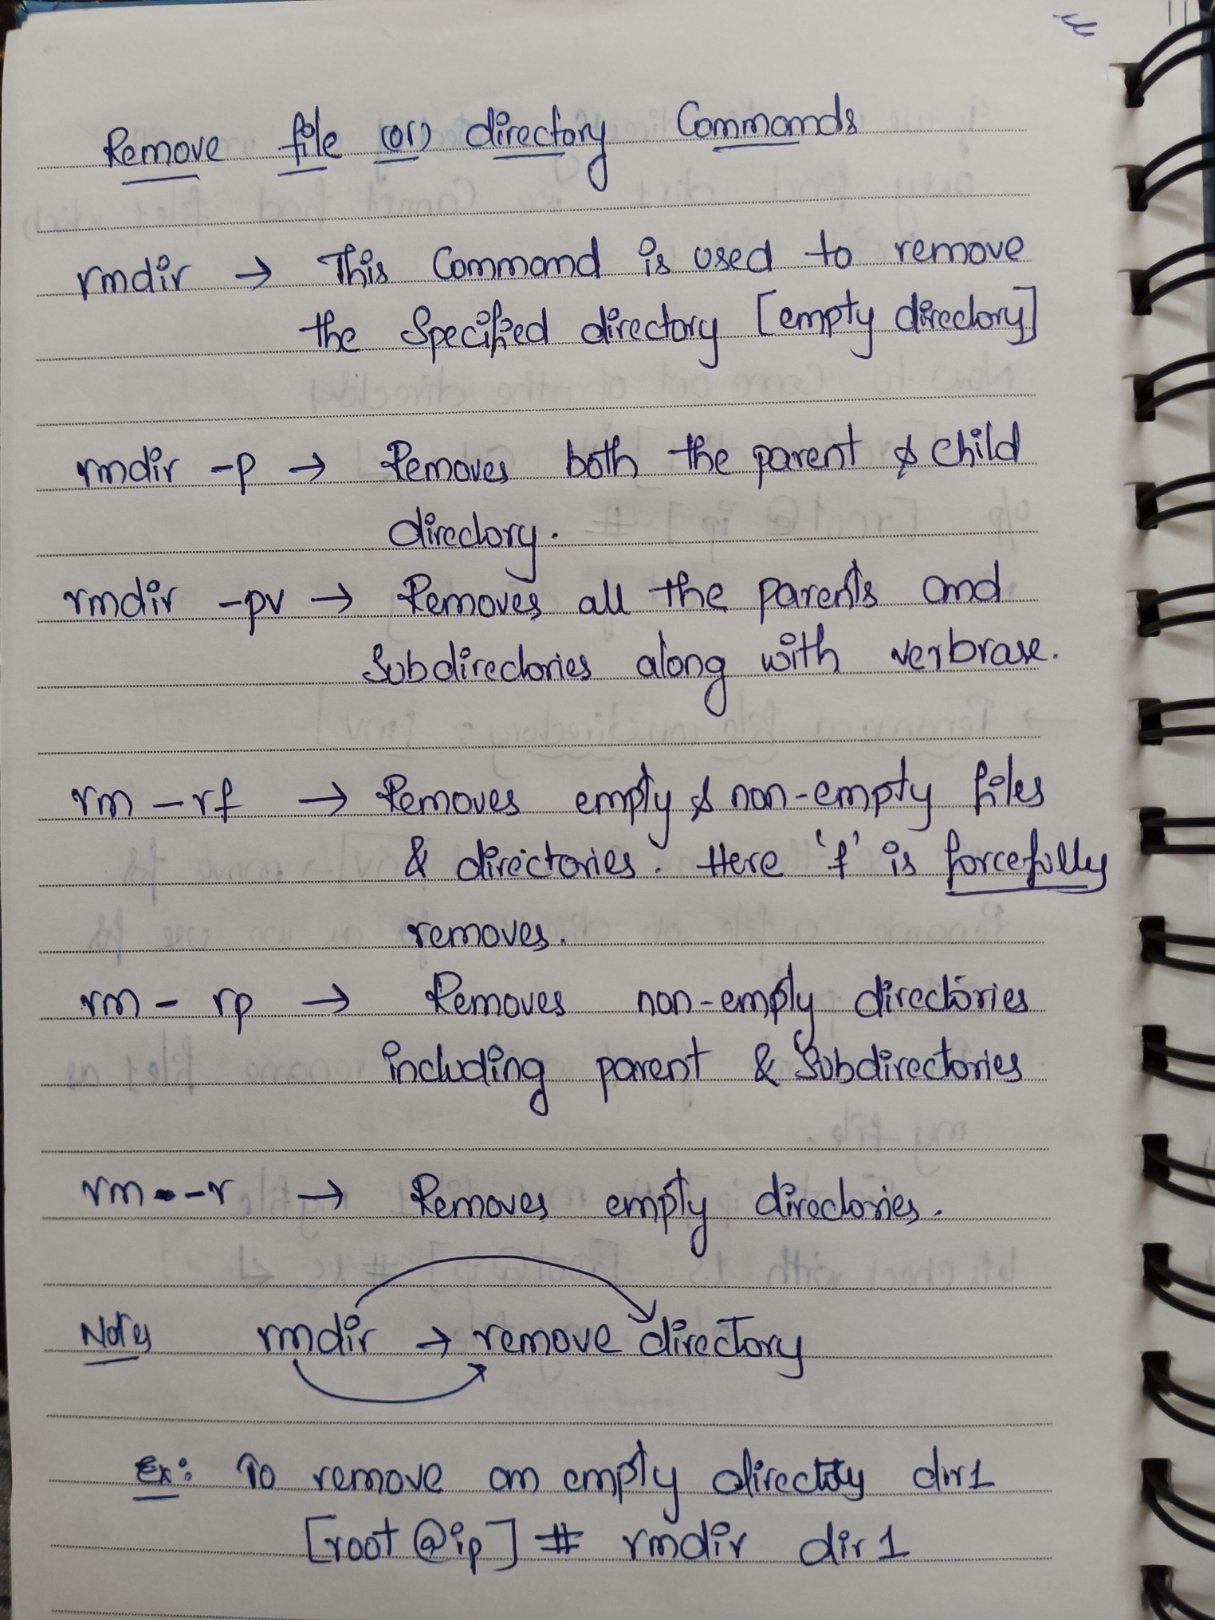 Remove file (or) directory Commands
rmdir → This Command is used to remove
the Specified directory [empty directory]
rmdir -p → Removes both the parent & child
directory.
rmdir -pv → Removes all the parents and
Subdirectories along with verbrase.
rm -rf → Removes empty & non-empty files
& directories. Here 'f' is forcefully
removes.
rm - rp → Removes non-empty directories
including parent & Subdirectories
rm -r → Removes empty directories.
Note rmdir → remove directory
Ex: To remove an empty directory dir1
[root @ip] # rmdir dir 1